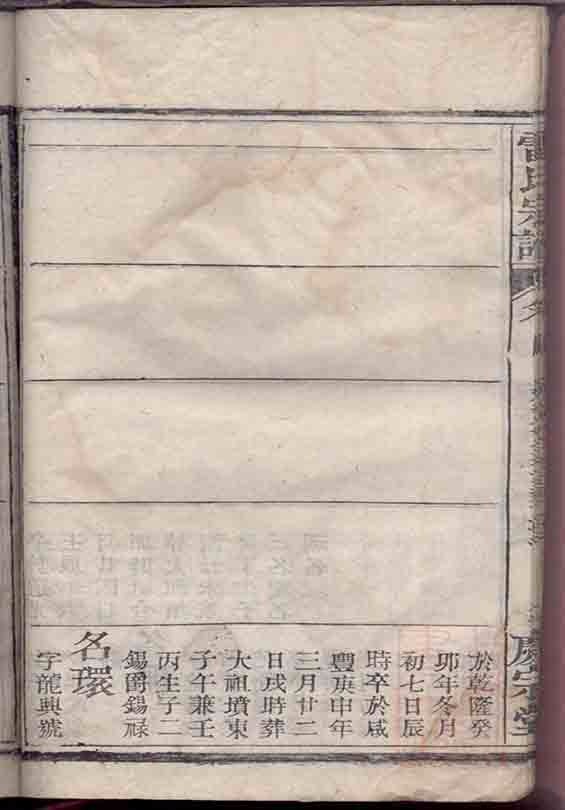 雷氏宗譜
慶宗堂
於乾隆癸
卯年冬月
初七日辰
時卒於咸
豐庚申年
三月廿二
日戌時葬
大祖墳東
子午兼壬
丙生子二
錫爵錫祿
名環
字龍興號